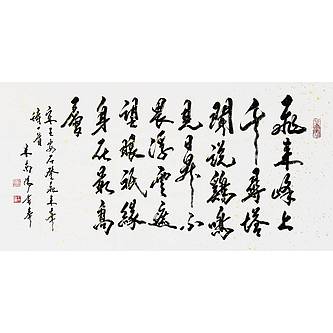 飛来峰上
千尋塔
聞說鷄鳴
見日昇不
畏浮雲遮
望眼祇緣
身在最高
層
宋王安石登飛来峰
詩一首